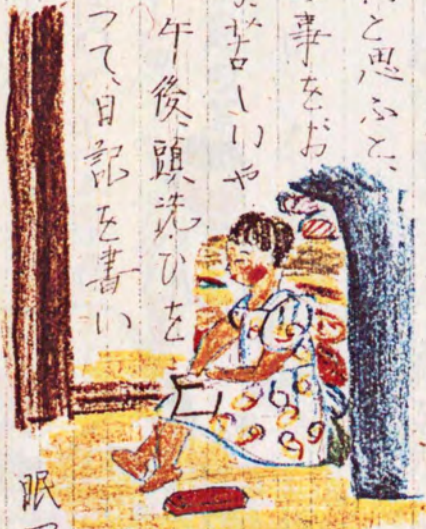 と思ふと、
事をお
苦しいや
午後、頭洗ひを
つて、日記を書い
眠